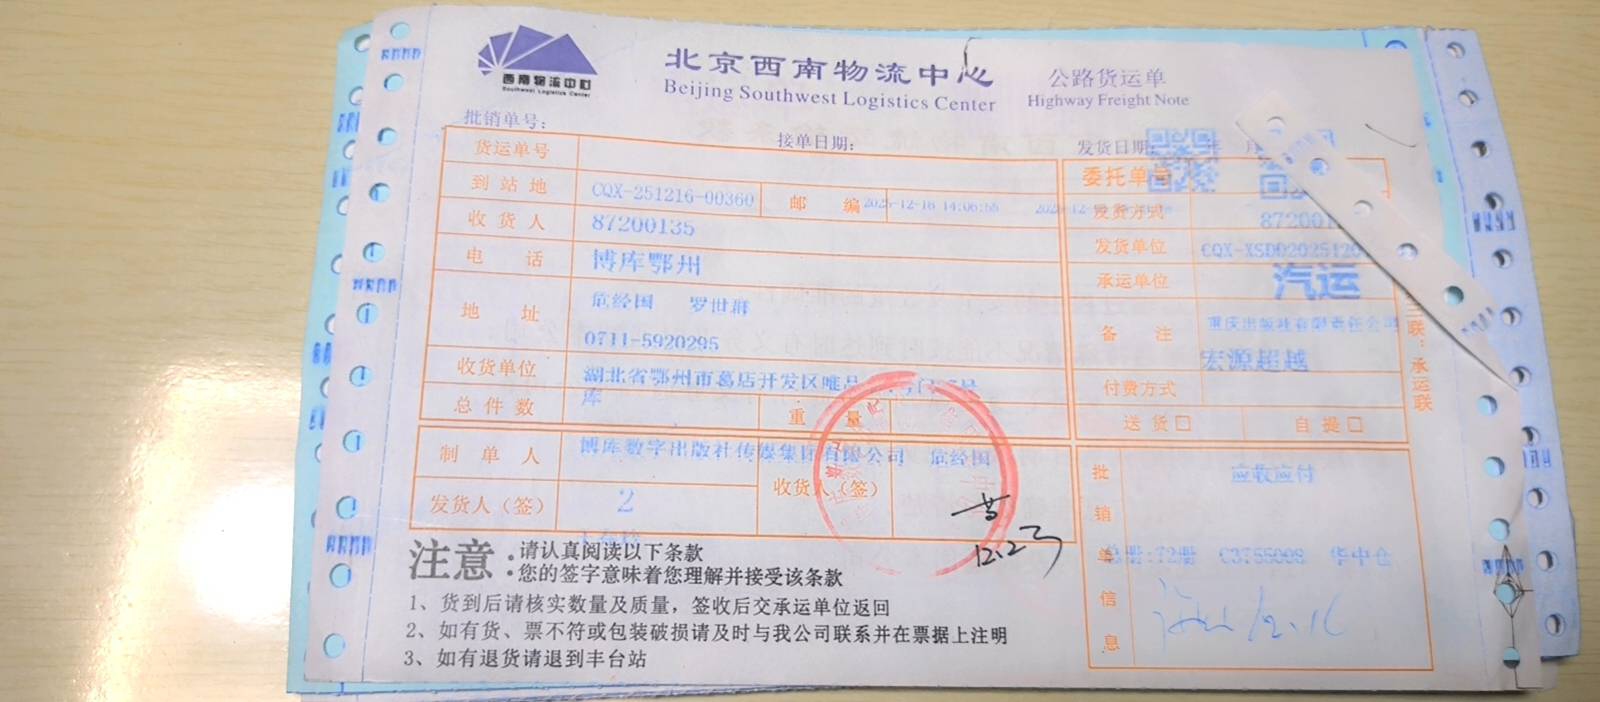 西南物流中心
Southwest Logistics Center
北京西南物流中心
Beijing Southwest Logistics Center
公路货运单
Highway Freight Note
批销单号:
接单日期:
发货日期:
年
月
货运单号
委托单号
到站地
CQX-251216-00360
邮编
2025-12-16 14:06:55
发货方式
收货人
87200135
发货单位
电话
博库鄂州
承运单位
汽运
地址
危经国
0711-5920295
备注
重庆出版社有限责任公司
宏源超越
收货单位
湖北省鄂州市葛店开发区唯品
库
付费方式
总件数
重量
送货□
自提□
制单人
博库数字出版社传媒集团有限公司 危经国
收货人(签)
发货人(签)
2
批销单信息
应收应付
总册:72册 C3755008 华中仓
12.23
三联:承运联
注意:
请认真阅读以下条款
您的签字意味着您理解并接受该条款
1、货到后请核实数量及质量，签收后交承运单位返回
2、如有货、票不符或包装破损请及时与我公司联系并在票据上注明
3、如有退货请退到丰台站